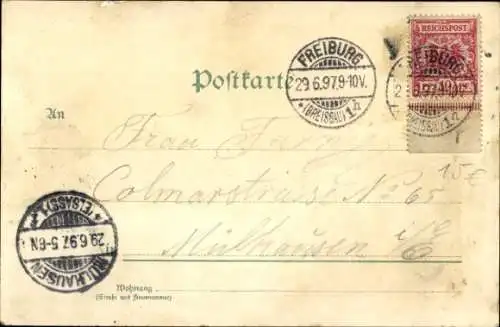 REICHSPOST
FREIBURG
29.6.97.9-10V.
*(BREISGAU)1h
FREIBURG
Postkarte
An
Frau
Colmarstrasse No 65
15€
Mülhausen i/E
MÜLHAUSEN
29.6.97.5-6N
*(ELSASS)1
Wohnung
(Straße und Hausnummer)